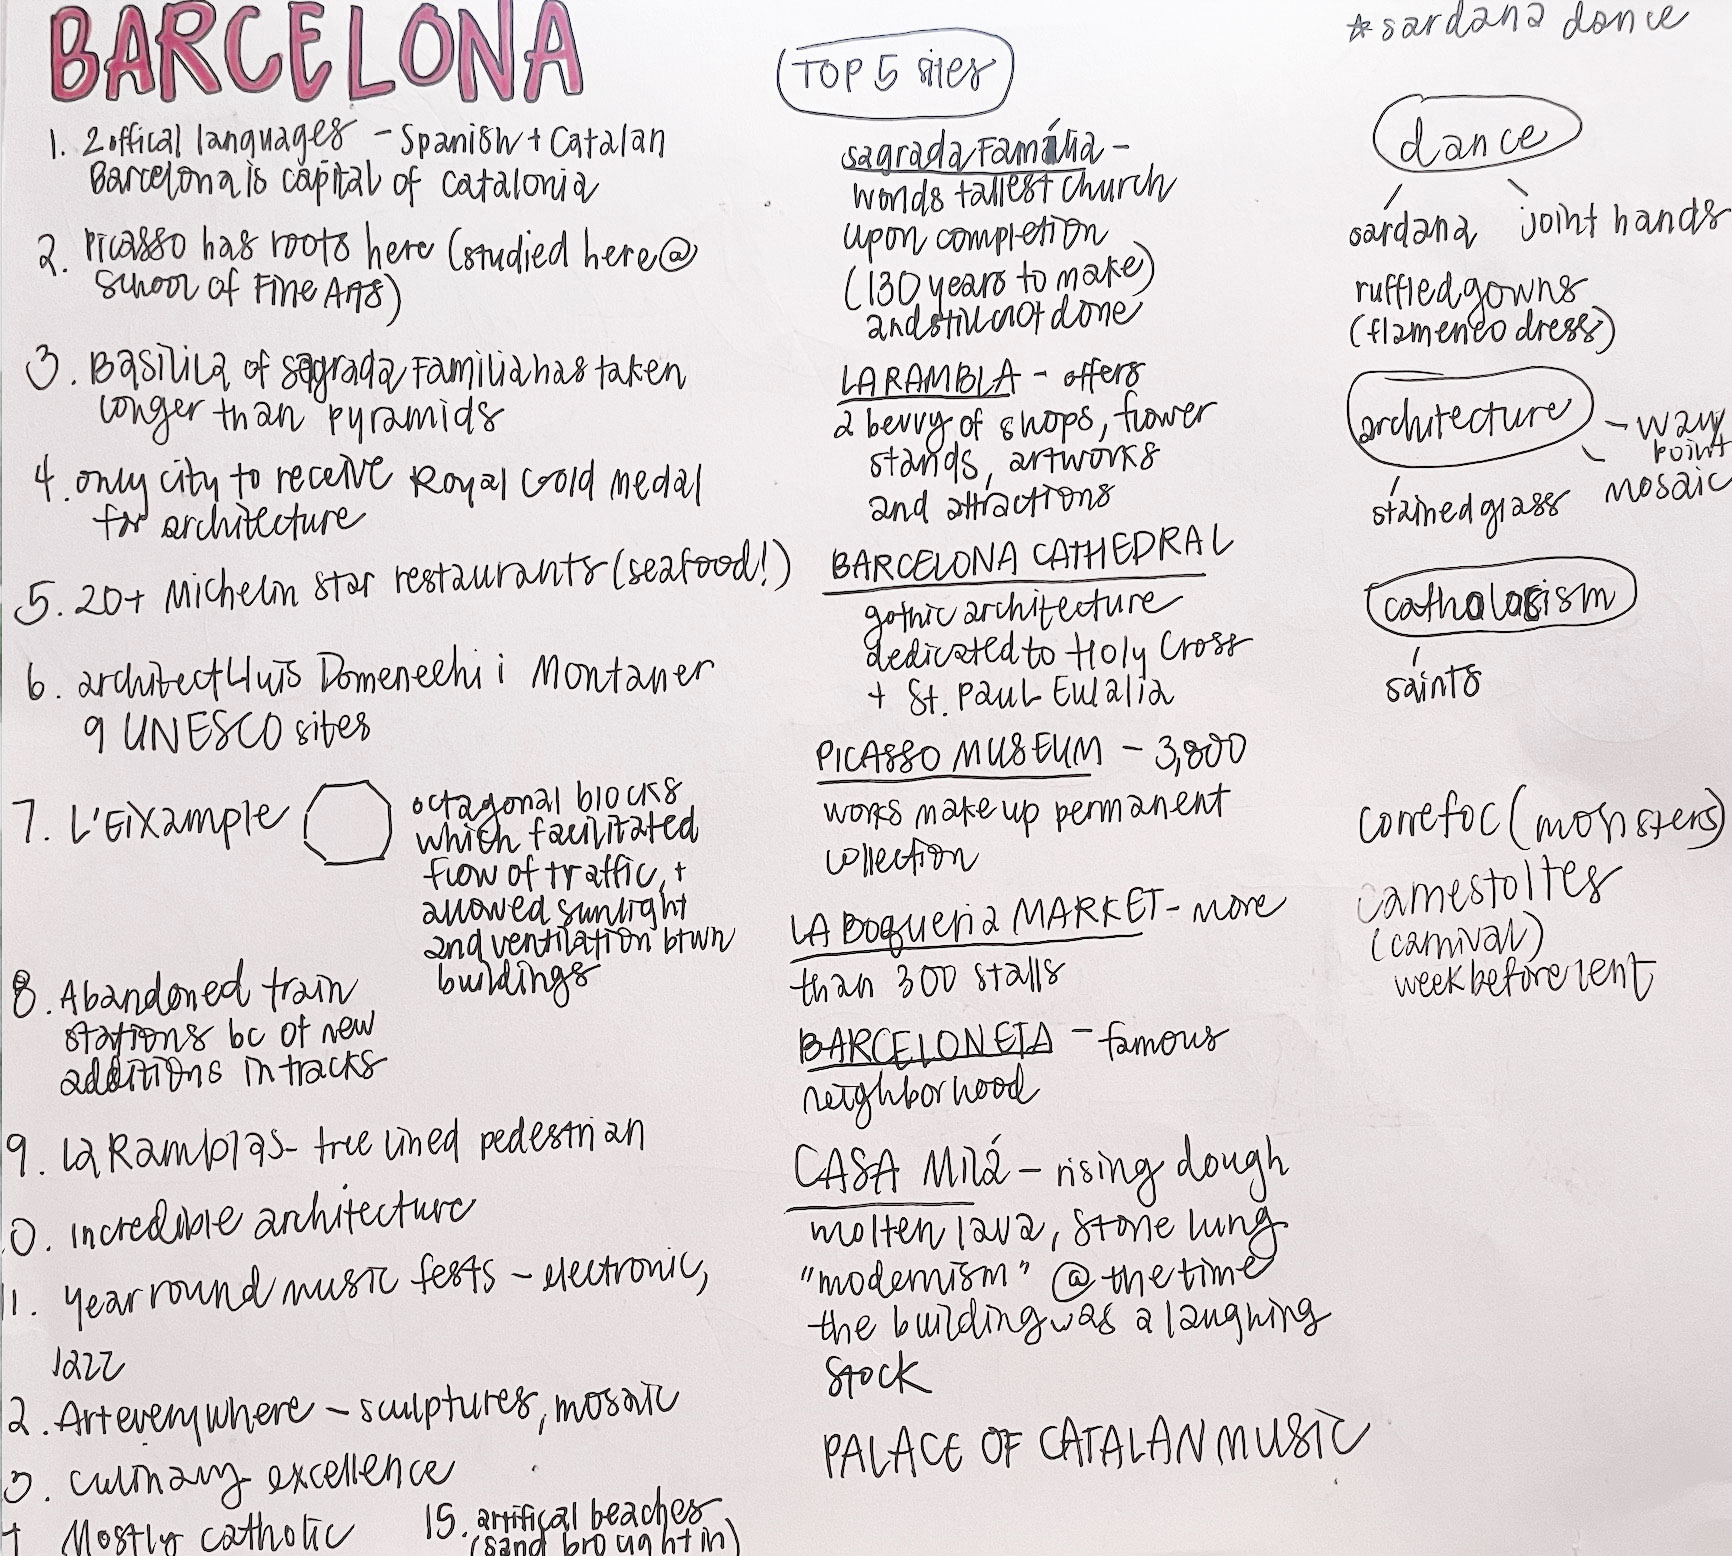 BARCELONA
1. 2 offical languages - Spanish + Catalan
Barcelona is capital of Catalonia
2. Picasso has roots here (studied here @
School of Fine Arts)
3. Basilila of sagrada Familia has taken
longer than pyramids
4. only city to receive Royal Gold medal
for architecture
5. 20+ Michelin star restaurants (seafood!)
6. architect Lluis Domenechi i Montaner
9 UNESCO sites
7. L'EiXample
octagonal blocks
which facilitated
flow of traffic, +
allowed sunlight
and ventilation btwn
buildings
8. Abandoned train
stations bc of new
additions in tracks
9. La Ramblas - tree lined pedestrian
0. incredible architecture
1. year round music fests - electronic,
Jazz
2. Art everywhere - sculptures, mosaic
3. culinary excellence
Mostly catholic
15. artifical beaches
(sand brought in)
TOP 5 sites
sagrada Família -
worlds tallest church
upon completion
(130 years to make)
and still not done
LA RAMBLA - offers
a bevvy of shops, flower
stands, artworks
and attractions
BARCELONA CATHEDRAL
gothic architecture
dedicated to Holy Cross
+ St. Paul Eulalia
PICASSO MUSEUM - 3,800
works make up permanent
collection
LA Boqueria MARKET - more
than 300 stalls
BARCELONETA - famous
neighborhood
CASA Milá - rising dough
molten lava, stone lung
"modernism" @ the time
the building was a laughing
stock
PALACE OF CATALAN MUSIC
*sardana dance
dance
sardana joint hands
ruffled gowns
(flamenco dress)
architecture - way
point
stained glass mosaic
catholocism
saints
correfoc (monsters)
camestoltes
(carnival)
week before lent